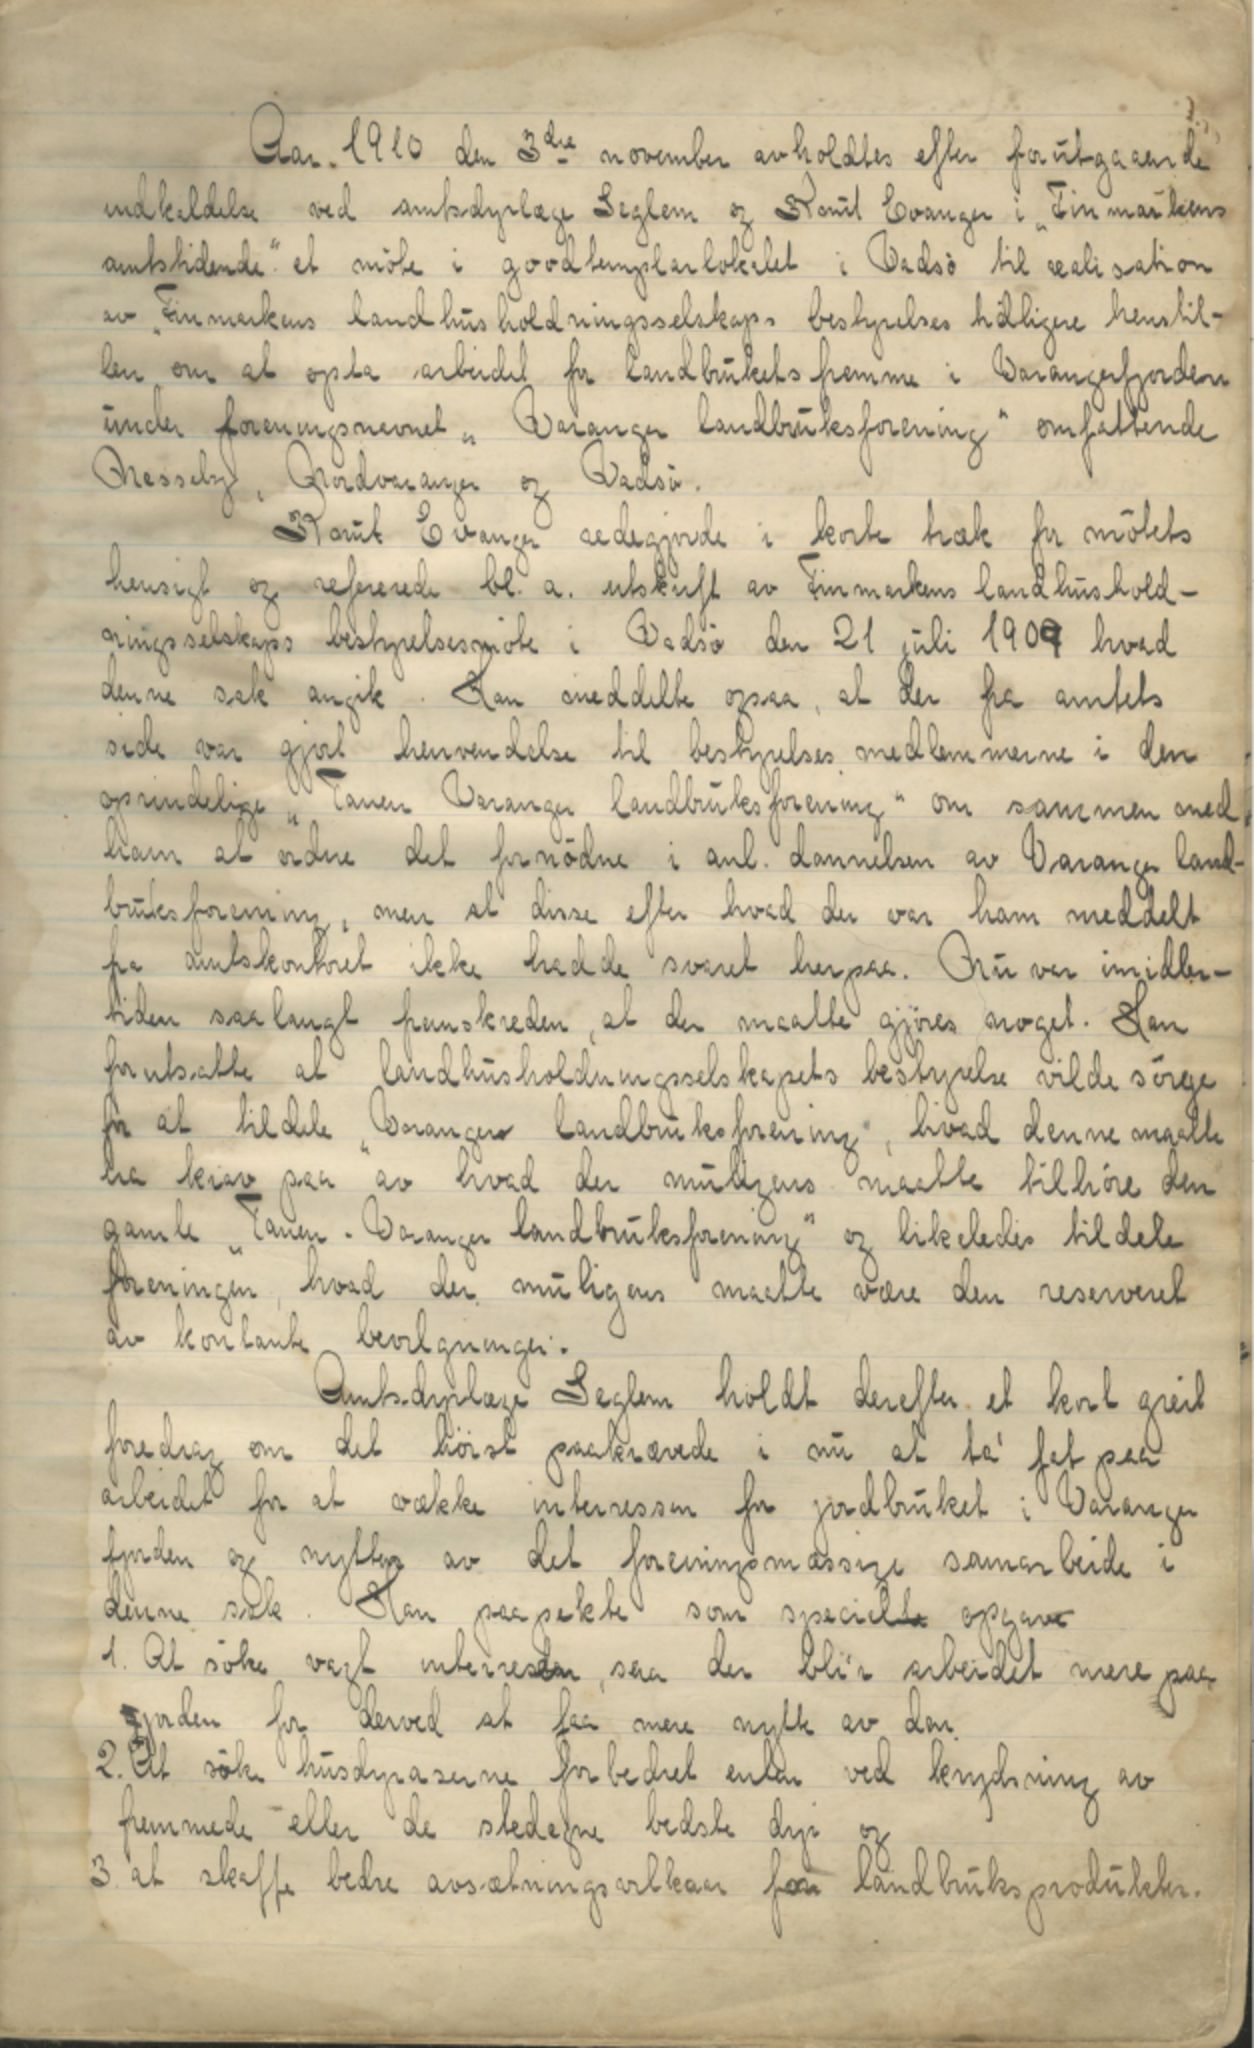 Aar. 1910 den 3dre november avholdtes efter forutgaaende
indkaldelse ved amtsdyrlæge Seglem og Knut Evanger i „Finmarkens
amtstidende" et möte i goodtemplarlokalet i Vadsö til realisation
av „Finmarkens landhusholdningsselskaps bestyrelses tidligere henstil-
len om at opta arbeidet for landbrukets fremme i Varangerfjorden
under foreningsnevnet „Varanger landbruksforening" omfattende
Nesseby, Nordvaranger og Vadsö.
Knut Evanger redegjorde i korte træk for mötets
hensigt og refererede bl. a. utskrift av Finmarkens landhushold-
ningsselskaps bestyrelsesmöte i Vadsö den 21 juli 1909 hvad
denne sak angik. Han meddelte ogsaa, at der fra amtets
side var gjort henvendelse til bestyrelsesmedlemmerne i den
oprindelige „Tanen Varanger landbruksforening" om sammen med
ham at ordne det fornödne i anl. dannelsen av Varanger land-
bruksforening, men at disse efter hvad der var ham meddelt
fra amtskontoret ikke hadde svaret herpaa. Nu var imidler-
tiden saa langt fremskreden, at der maatte gjöres noget. Han
forutsatte at landhusholdningsselskapets bestyrelse vilde sörge
for at tildele „Varanger landbruksforening", hvad denne maatte
ha krav paa av hvad der muligens maatte tilhöre den
gamle „Tanen-Varanger landbruksforening" og likeledes tildele
foreningen, hvad der muligens maatte være den reserveret
av kontante bevilgninger.
Amtsdyrlæge Seglem holdt derefter et kort greit
foredrag om det höist paakrævede i nu at ta' fat paa
arbeidet for at vække interessen for jordbruket i Varanger
fjorden og nytten av det foreningsmæssige samarbeide i
denne sak. Han paapekte som specielle opgaver
1. At söke vagt interressen, saa der bli'r arbeidet mere paa
jorden for derved at faa mere nytte av den.
2. At söke husdyraserne forbedret enten ved krydsning av
fremmede eller de stedegne bedste dyr og
3. at skaffe bedre avsætningsvilkaar for landbruksprodukter.